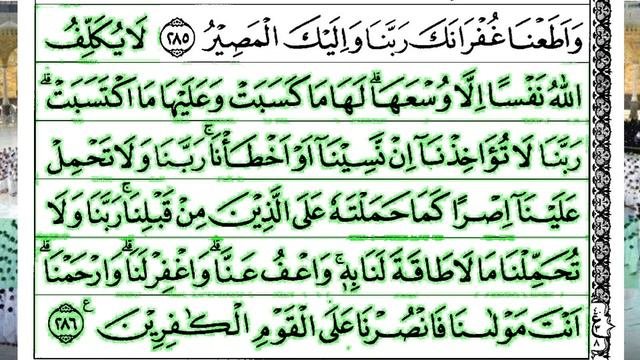 وَاَطَعْنَا غُفْرَانَكَ رَبَّنَا وَاِلَيْكَ الْمَصِيْرُ ﴿۲۸۵﴾ لَا يُكَلِّفُ
اللهُ نَفْسًا اِلَّا وُسْعَهَا ؕ لَهَا مَا كَسَبَتْ وَعَلَيْهَا مَا اكْتَسَبَتْ ؕ
رَبَّنَا لَا تُؤَاخِذْنَاۤ اِنْ نَّسِيْنَاۤ اَوْ اَخْطَأْنَا ۚ رَبَّنَا وَلَا تَحْمِلْ
عَلَيْنَاۤ اِصْرًا كَمَا حَمَلْتَهٗ عَلَى الَّذِيْنَ مِنْ قَبْلِنَا ۚ رَبَّنَا وَلَا
تُحَمِّلْنَا مَا لَا طَاقَةَ لَنَا بِهٖ ۚ وَاعْفُ عَنَّا ۥ وَاغْفِرْ لَنَا ۥ وَارْحَمْنَا ۥ
اَنْتَ مَوْلٰىنَا فَانْصُرْنَا عَلَى الْقَوْمِ الْكٰفِرِيْنَ ﴿۲۸۶﴾ ع